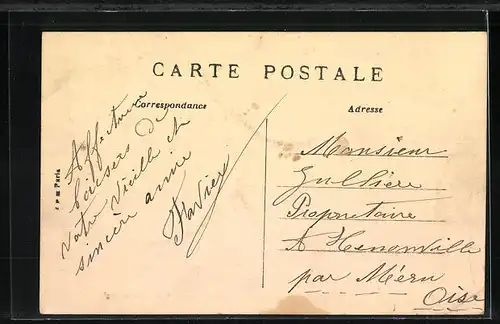 CARTE POSTALE
Correspondance
Adresse
Affectueux
baisers de
votre vieille et
sincère amie
Monsieur
Propriétaire
A Henonville
par Méru
Oise